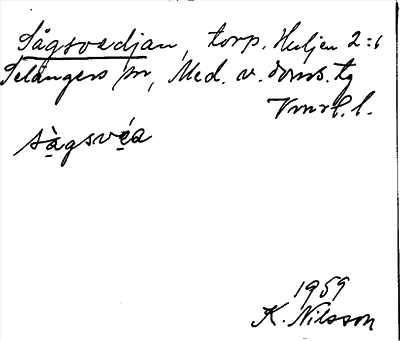 Sågsvedjan, torp. Huljen 2:1
Selångers sn, Med. v. doms. tg
Vnorl. l.
sàgsvéa
1959
K. Nilsson